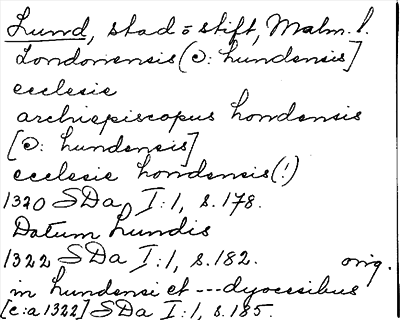 Lund, stad o stift, Malm. l.
Londonensis (ɔ: lundensis]
ecclesie
archiepiscopus londensis
[ɔ: lundensis]
ecclesie londensis (!)
1320 SDa I:1, s. 178.
Datum Lundis
1322 SDa I:1, s. 182. orig.
in lundensi et --- dyocesibus
[c:a 1322] SDa I:1, s. 185.